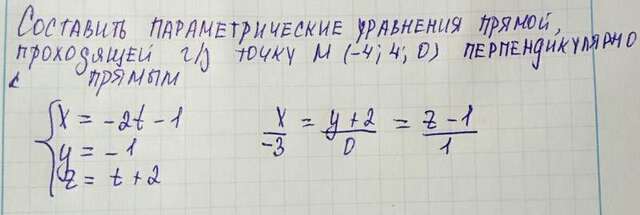 Составить параметрические уравнения прямой,
проходящей ч/з точку М (-4; 4; 0) перпендикулярно
с прямым
x = -2t - 1
y = -1
z = t + 2
x/-3 = y+2/0 = z-1/1